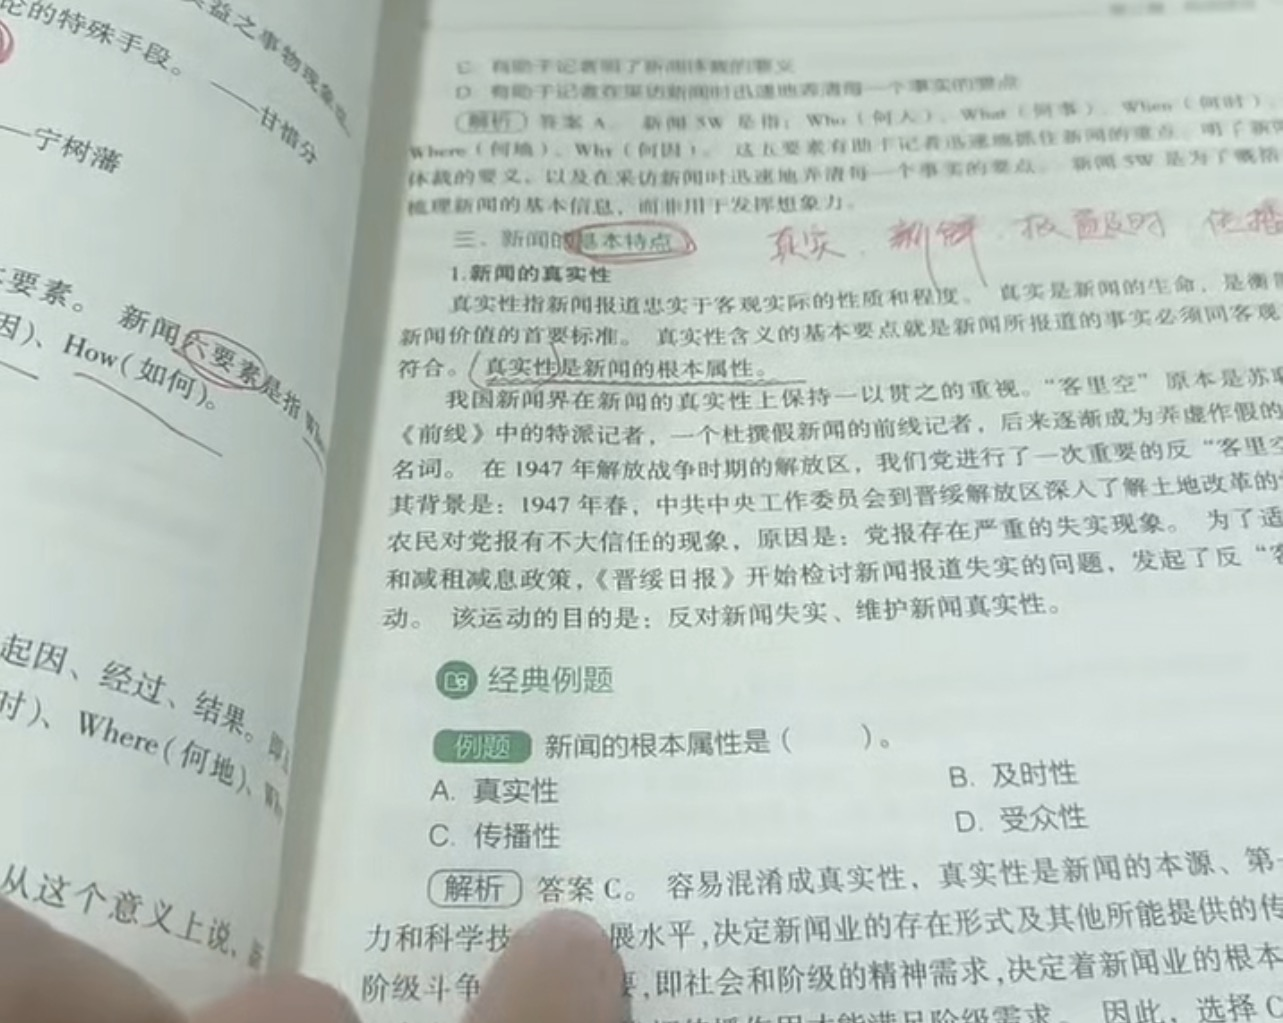 益之事物现象也。
论的特殊手段。
——甘惜分
——宁树藩
要素。 新闻六要素是指
因)、How(如何)。
起因、经过、结果。
时)、Where(何地)、
从这个意义上说,
C. 有助于记者明了新闻体裁的要义
D. 有助于记者在采访新闻时迅速地弄清每一个事实的要点
解析 答案 A。 新闻 5W 是指：Who（何人）、What（何事）、When（何时）、
Where（何地）、Why（何因）。 这五要素有助于记者迅速地抓住新闻的重点，明了新闻
体裁的要义，以及在采访新闻时迅速地弄清每一个事实的要点。 新闻 5W 是为了概括
梳理新闻的基本信息，而非用于发挥想象力。
三、新闻的基本特点 真实、新鲜、报道及时、传播
1.新闻的真实性
真实性指新闻报道忠实于客观实际的性质和程度。 真实是新闻的生命，是衡
新闻价值的首要标准。 真实性含义的基本要点就是新闻所报道的事实必须同客观
符合。 真实性是新闻的根本属性。
我国新闻界在新闻的真实性上保持一以贯之的重视。“客里空” 原本是苏联
《前线》中的特派记者，一个杜撰假新闻的前线记者，后来逐渐成为弄虚作假的
名词。 在 1947 年解放战争时期的解放区，我们党进行了一次重要的反 “客里空
其背景是：1947 年春，中共中央工作委员会到晋绥解放区深入了解土地改革的
农民对党报有不大信任的现象，原因是：党报存在严重的失实现象。 为了适
和减租减息政策，《晋绥日报》开始检讨新闻报道失实的问题，发起了反 “客
动。 该运动的目的是：反对新闻失实、维护新闻真实性。
经典例题
例题 新闻的根本属性是（ ）。
A. 真实性
B. 及时性
C. 传播性
D. 受众性
解析 答案 C。 容易混淆成真实性，真实性是新闻的本源、第
力和科学技 展水平,决定新闻业的存在形式及其他所能提供的传
阶级斗争 要,即社会和阶级的精神需求,决定着新闻业的根本
才能满足阶级需求。 因此，选择 C